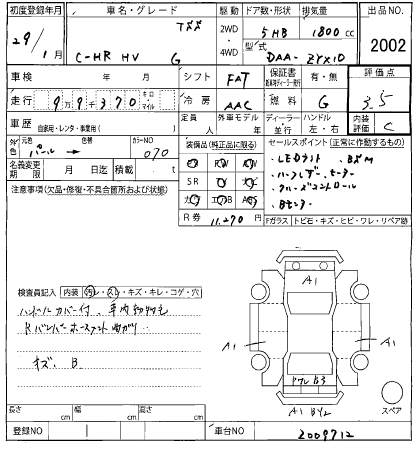 初度登録年月
車名・グレード
駆動
ドア数・形状
排気量
出品NO
29/1月
C-HR HV G
2WD
・
4WD
5HB
1800cc
型式
DAA-ZYX10
2002
車検
年 月
シフト
FAT
保証書
有・無
評価点
3.5
走行
99370
キロ・マイル
冷房
AAC
燃料
G
内装評価
C
車歴
自家用・レンタ・事業用( )
定員
人
外車モデル
年
ディーラー・並行
ハンドル
左・右
外色
元色
パール
色替
カラーNO
070
装備品(純正品に限る)
セールスポイント(正常に作動するもの)
・LEDライト ・BSM
・ハーフレザーヒーター
・クルーズコントロール
・Bモニター
名義変更期限
月 日迄
積載
t
SR
注意事項(欠品・修復・不具合箇所および状態)
R券
11,270円
Fガラス
トビ石・キズ・ヒビ・ワレ・リペア跡
検査員記入
内装
汚レ・スレ・キズ・キレ・コゲ・穴
ハンドルカバー付
キズ、B
A1
A1
A1
ドワレ B3
A1 BY2
スペア
長さ cm
幅 cm
高さ cm
登録NO
車台NO
2009712